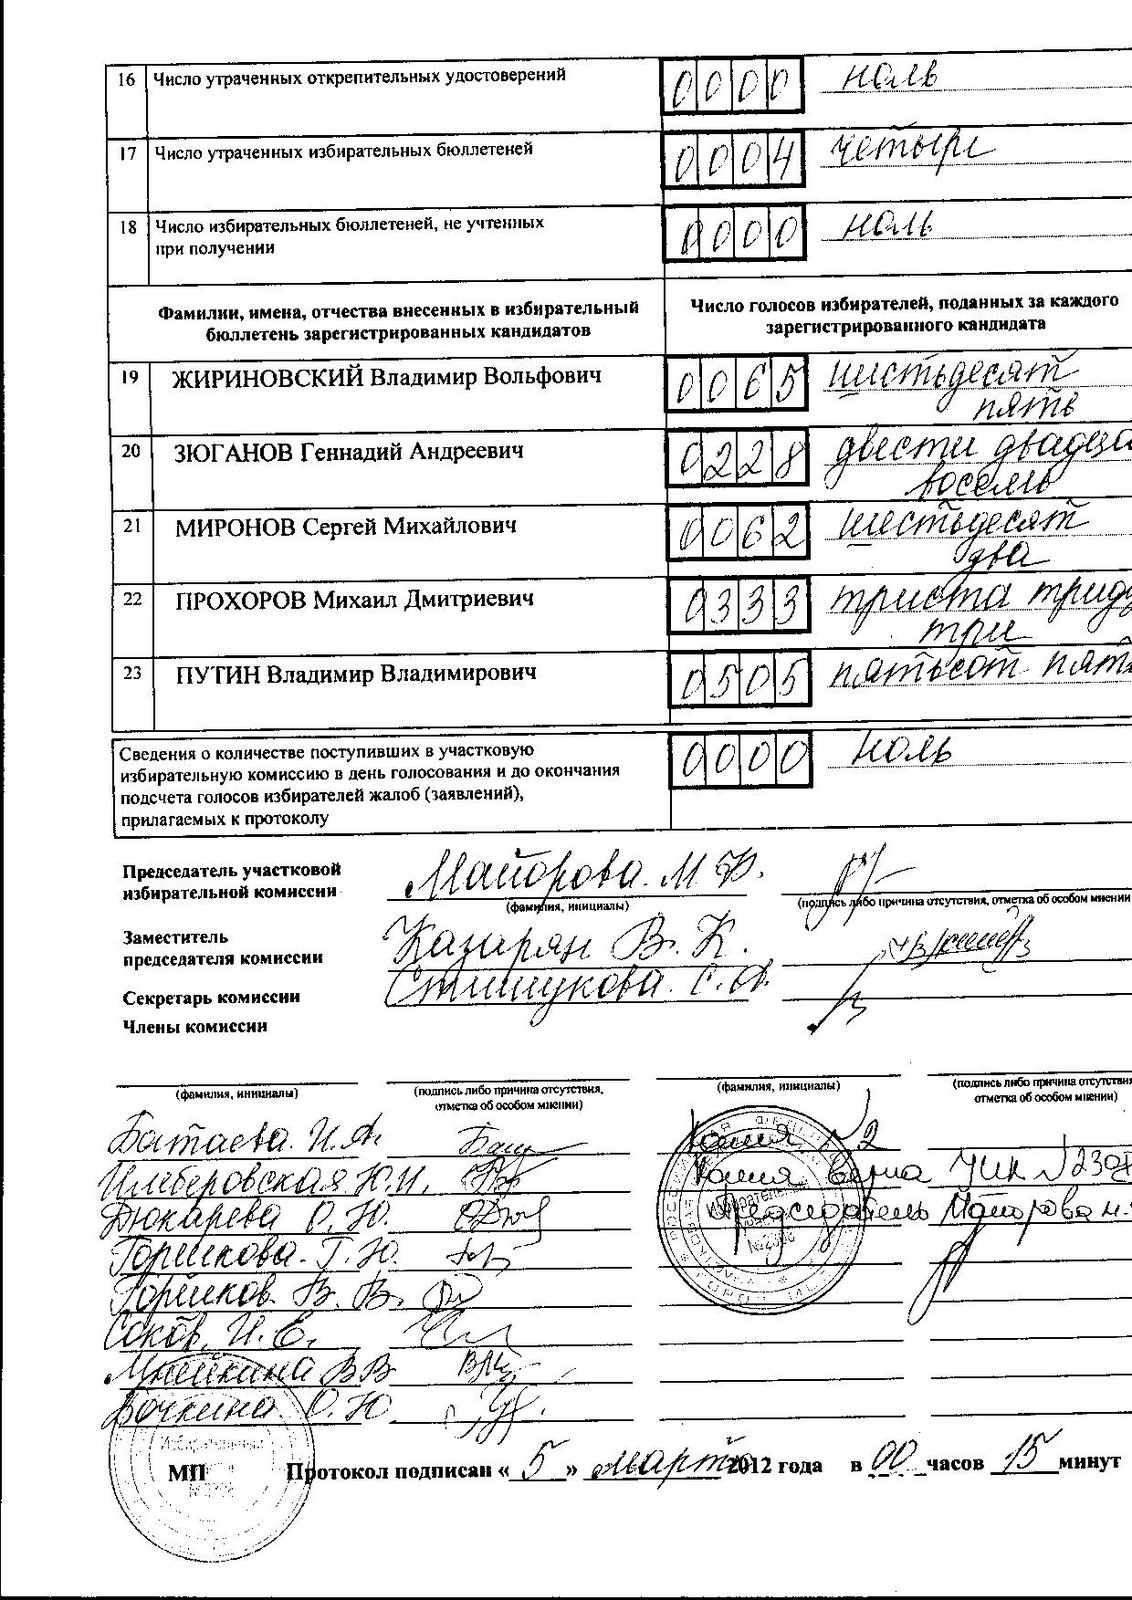 16 Число утраченных открепительных удостоверений 0000 ноль
17 Число утраченных избирательных бюллетеней 0004 четыри
18 Число избирательных бюллетеней, не учтенных 0000 ноль
при получении
Фамилии, имена, отчества внесенных в избирательный
бюллетень зарегистрированных кандидатов
Число голосов избирателей, поданных за каждого
зарегистрированного кандидата
19 ЖИРИНОВСКИЙ Владимир Вольфович 0065 шистьдесят
пять
20 ЗЮГАНОВ Геннадий Андреевич 0228 двести двадца
восемь
21 МИРОНОВ Сергей Михайлович 0062 шестьдесят
два
22 ПРОХОРОВ Михаил Дмитриевич 0333 триста тридц
три
23 ПУТИН Владимир Владимирович 0505 пятьсот пять
Сведения о количестве поступивших в участковую 0000 ноль
избирательную комиссию в день голосования и до окончания
подсчета голосов избирателей жалоб (заявлений),
прилагаемых к протоколу
Председатель участковой
избирательной комиссии Майорова. М. Ф.
(фамилия, инициалы) (подпись либо причина отсутствия, отметка об особом мнении
Заместитель
председателя комиссии Казарян В. К.
Секретарь комиссии С.А.
Члены комиссии
(фамилия, инициалы) (подпись либо причина отсутствия, (фамилия, инициалы) (подпись либо причина отсутствия
отметка об особом мнении) отметка об особом мнении)
Батаева. И.А. Копия №2
Ю.И. Копия верна УИК №230
Дюкарева О. Ю. Председатель Майорова м.
Горшкова. Г. Ю.
Горшков. В. В.
Соков. И. Е.
В.В.
Бочкина. О. Ю.
МП Протокол подписан « 5 » марта 2012 года в 00 часов 15 минут